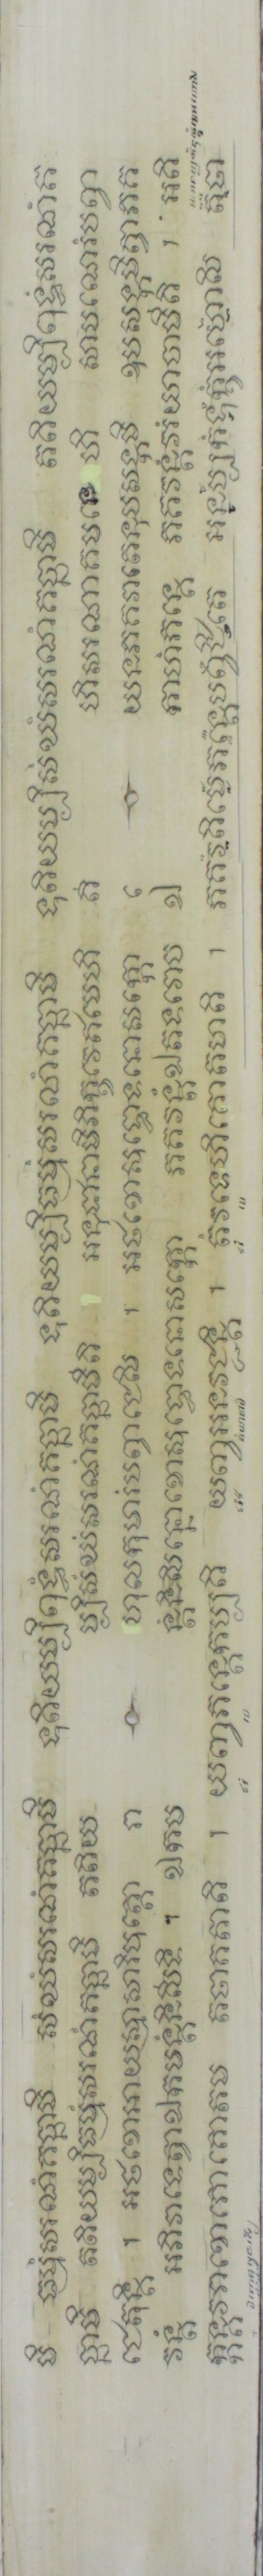 មិ ធម្មំសរណំគច្ឆាមិ សំឃំសរណំគច្ឆាមិ ទុតិយម្បិពុទ្ធំសរណំគច្ឆាមិ ទុតិយម្បិធម្មំសរណំគច្ឆាមិ ទុតិយម្បិសំឃំសរណំគច្ឆាមិ តតិយម្បិពុទ្ធំសរណំគ
ច្ឆាមិ តតិយម្បិធម្មំសរណំគច្ឆាមិ តតិយ ម្បិសំឃំសរណំគច្ឆាមីតិ អនុជានាមិភិក្ខវេឥមេហិ តី ហិសរណាគមនេ ហិ សាមណេរំបព្វា
ជេតុន្តិ ។ អថខោអាយស្មាសារិបុត្តោ រា ហុលកុមារំបព្វាជេសិ ។ អថខោសុទ្ធោទនោសក្កោ យេ នភគវាតេនុបសង្កមិ ឧបសង្កមិត្វាភគ
វន្តំ អភិវាទេត្វាឯកមន្តំនិសីទិ ។ ឯកម ន្តំនិសិន្នោខោសុទ្ធោទនោសក្កោ ភគវន្តំឯតទវោច ឯ កាហំភន្តេ ភគវន្តំវរំយាចាមីតិ ។ អតិ
ក្កន្តវរាខោគោតម តថាគតាតិ ។ យញ្ចភន្តេកប្បតិ យញ្ចអនវជ្ជន្តិ ។ តំវទេហិគោតមាតិ ។ ភគវតិមេភន្តេបព្វជិតេ អនប្បកំទុក្ខំអហោសិ តថា